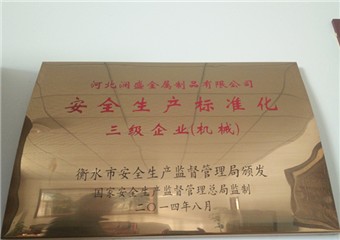 河北润盛金属制品有限公司
安全生产标准化
三级企业(机械)
衡水市安全生产监督管理局颁发
国家安全生产监督管理总局监制
二〇一四年八月